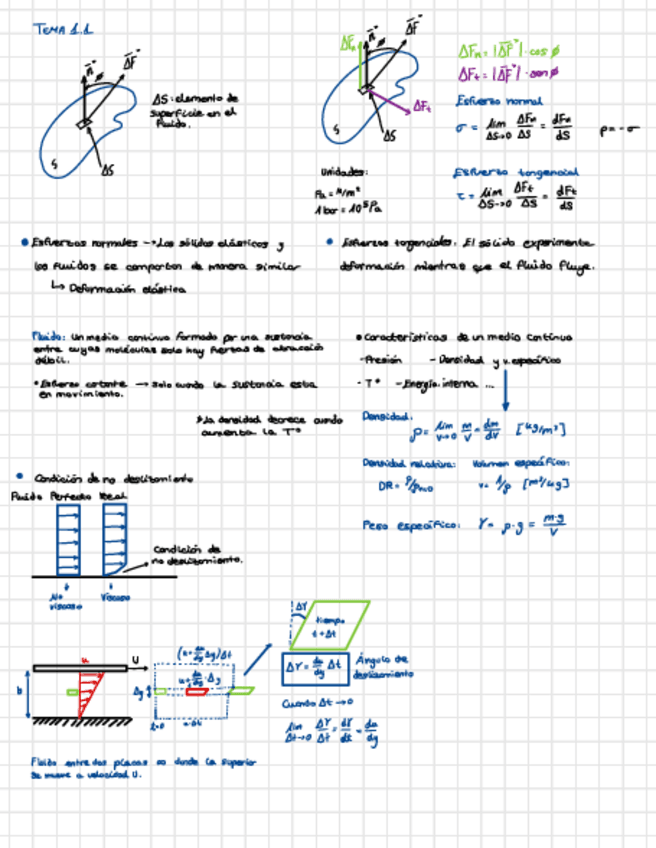 TEMA 1.1
n⃗ φ ΔF⃗
ΔS: elemento de
superficie en el
fluido.
S
ΔS
ΔFn n⃗ φ ΔF⃗
ΔFt
S
ΔS
ΔFn = |ΔF⃗| · cos φ
ΔFt = |ΔF⃗| · sen φ
Esfuerzo normal
σ = lim ΔS→0 ΔFn/ΔS = dFn/dS p = -σ
Unidades:
Pa = N/m²
1 bar = 10⁵ Pa
Esfuerzo tangencial
τ = lim ΔS→0 ΔFt/ΔS = dFt/dS
• Esfuerzos normales → Los sólidos elásticos y
los fluidos se comportan de manera similar
↳ Deformación elástica
• Esfuerzos tangenciales. El sólido experimenta
deformación mientras que el fluido fluye.
Fluido: Un medio continuo formado por una sustancia
entre cuyas moléculas solo hay fuerzas de atracción
débil.
• Esfuerzo cortante → solo cuando la sustancia esta
en movimiento.
* La densidad decrece cuando
aumenta la Tª
• Características de un medio continuo
- Presión - Densidad y v. específico
- Tª - Energía interna ...
Densidad.
ρ = lim v→0 m/v = dm/dv [kg/m³]
Densidad relativa: Volumen específico:
DR = ρ/ρH₂O v = 1/ρ [m³/kg]
Peso específico: γ = ρ·g = m·g/V
• Condición de no deslizamiento
Fluido Perfecto Real
Condición de
no deslizamiento.
No viscoso
Viscoso
u U
b
(u + du/dy Δy) Δt
u + du/dy · Δy
Δy
t=0 u·Δt
Δγ
tiempo
t + Δt
Δγ = du/dy Δt
Ángulo de
deslizamiento
Cuando Δt → 0
lim Δt→0 Δγ/Δt = dγ/dt = du/dy
Fluido entre dos placas ∞ donde la superior
se mueve a velocidad U.